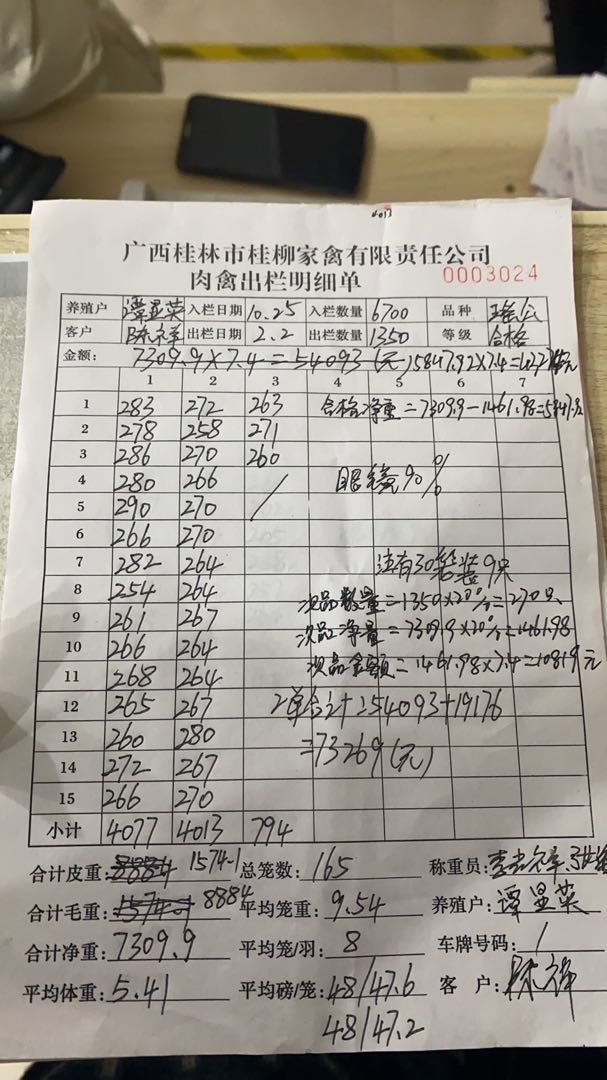 4013
广西桂林市桂柳家禽有限责任公司
肉禽出栏明细单 0003024
养殖户 谭显英 入栏日期 10.25 入栏数量 6700 品种 瑶公
客户 陈祥 出栏日期 2.2 出栏数量 1350 等级 合格
金额: 7309.9×7.4=54093(元) 5847.92×7.4=
1 2 3 4 5 6 7
1 283 272 263 合格净重=7309.9-1461.98=
2 278 258 271
3 286 270 260
4 280 266 / 眼镜90%
5 290 270
6 266 270
7 282 264 注有30笼装9只
8 254 264 次品数量=1350×20%=270只
9 261 267 次品净重=7309.9×20%=1461.98
10 266 264 次品金额=1461.98×7.4=10819元
11 268 264
12 265 267 2单合计=54093+19176
13 260 280 =73269(元)
14 272 267
15 266 270
小计 4077 4013 794
合计皮重: 1574.1 总笼数: 165 称重员:
合计毛重: 8884 平均笼重: 9.54 养殖户: 谭显英
合计净重: 7309.9 平均笼/羽: 8 车牌号码: 1
平均体重: 5.41 平均磅/笼: 48/47.6 客 户: 陈祥
48/47.2